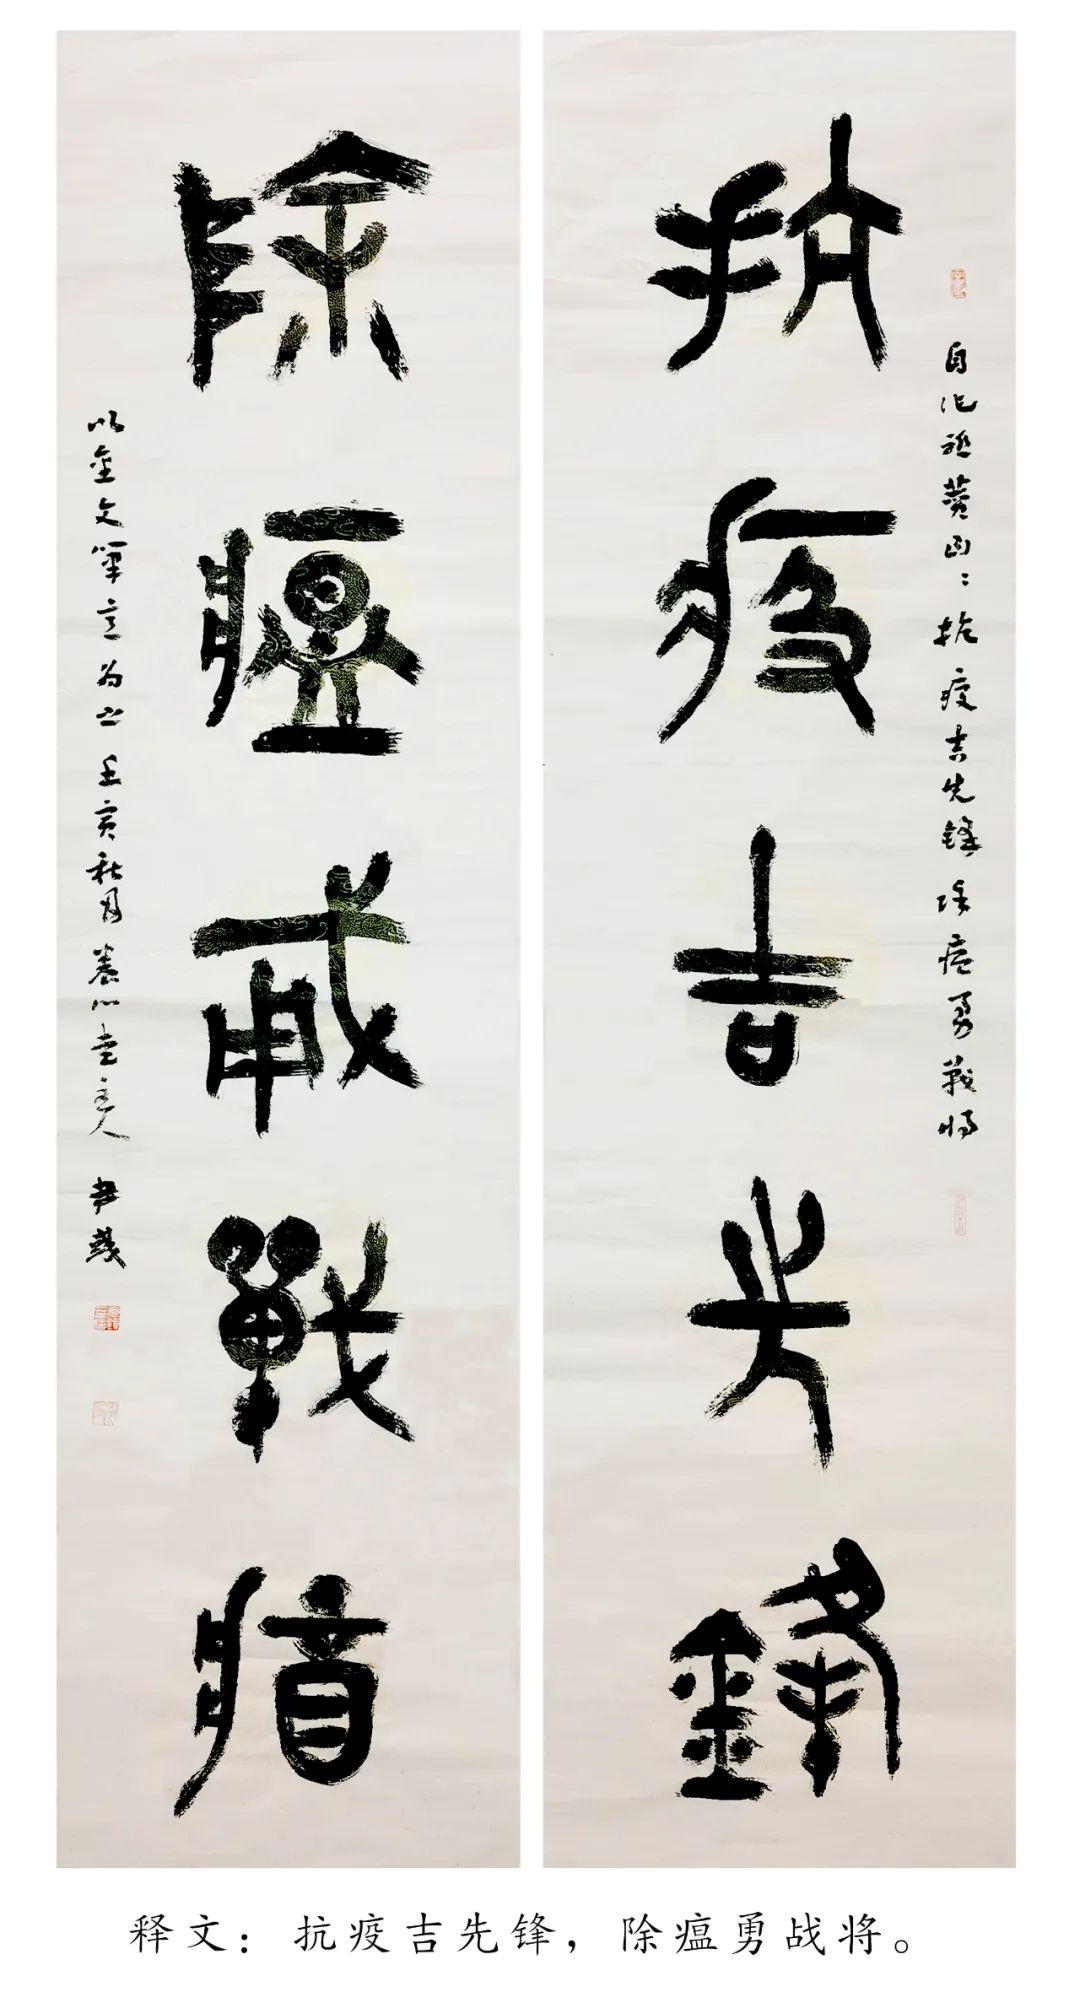 抗疫吉先鋒
自作抗疫吉先鋒除瘟勇戰将
除瘟勇戰將
以金文筆意为之壬寅秋月養心堂主人尹
释文：抗疫吉先锋，除瘟勇战将。